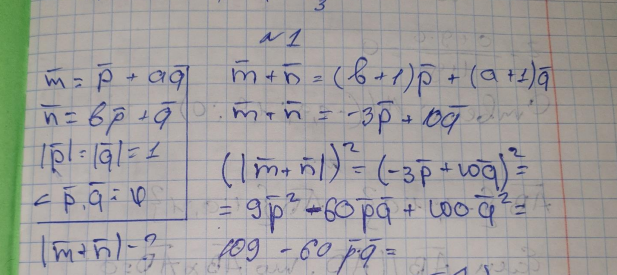 3
№1
m̅ = p̅ + aq̅
n̅ = bp̅ + q̅
|p̅| = |q̅| = 1
< p̅, q̅ = φ
|m̅+n̅| - ?
m̅ + n̅ = (b+1)p̅ + (a+1)q̅
m̅ + n̅ = -3p̅ + 10q̅
(|m̅+n̅|)² = (-3p̅ + 10q̅)² =
= 9p̅² - 60p̅q̅ + 100·q̅² =
109 - 60 p̅·q̅ =